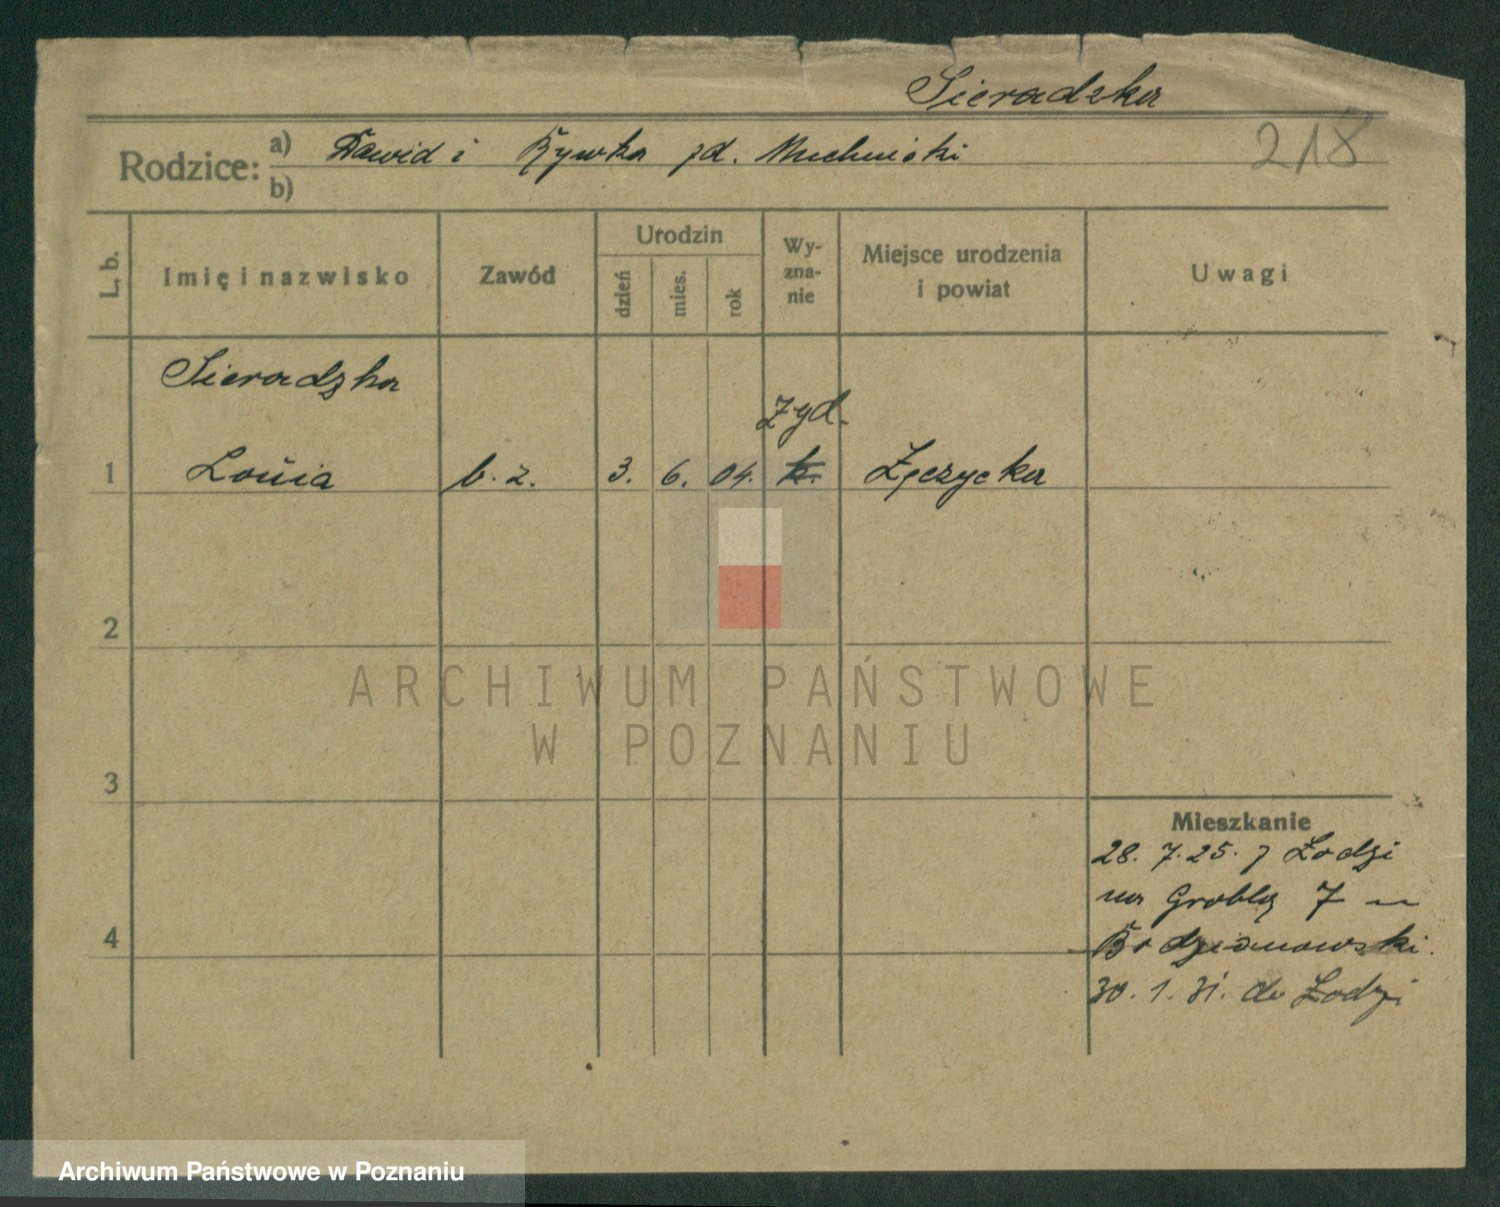 Sieradzka
218
Rodzice: a) Dawid i Rywka zd. Muchnicki
b)
L. b. Imię i nazwisko Zawód Urodzin dzień mies. rok Wyznanie Miejsce urodzenia i powiat Uwagi
Sieradzka
żyd.
1 Lońia b. z. 3. 6. 04. k. Łęczycka
2
3
4
Mieszkanie
28. 7. 25. z Łodzi
na Groblą 7
30. 1. 31. do Łodzi
ARCHIWUM PAŃSTWOWE
W POZNANIU
Archiwum Państwowe w Poznaniu